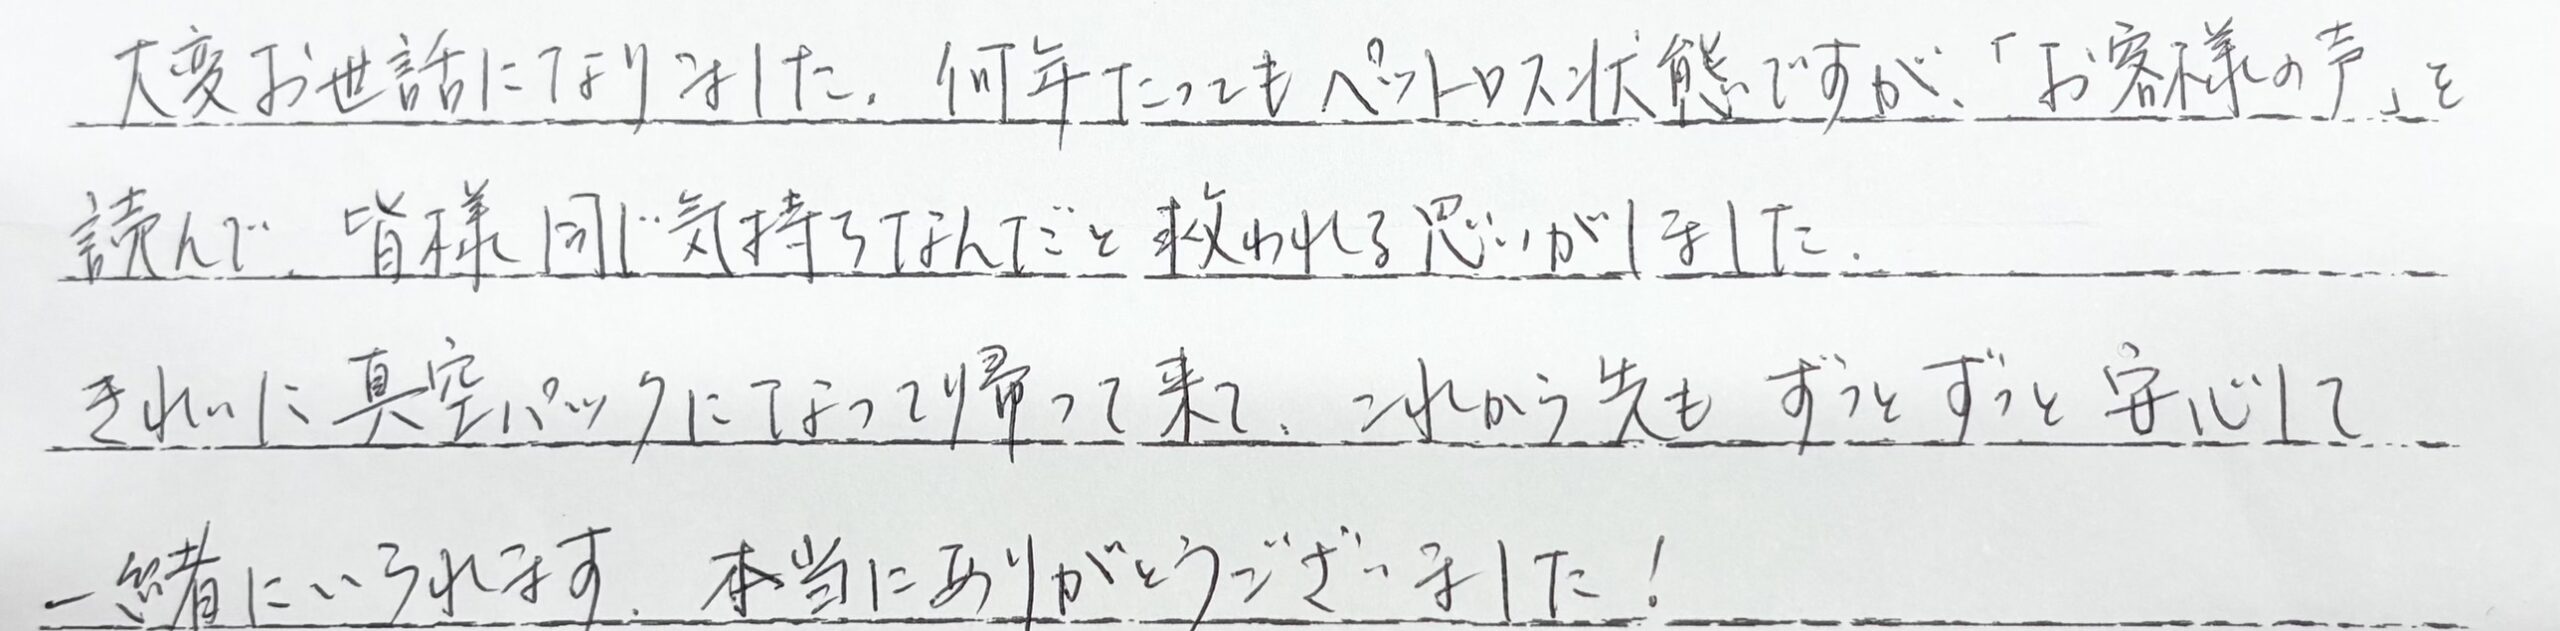 大変お世話になりました。何年たってもペットロス状態ですが、「お客様の声」を
読んで、皆様同じ気持ちなんだと救われる思いがしました。
きれいに真空パックになって帰って来て、これから先もずっとずっと安心して
一緒にいられます。本当にありがとうございました!